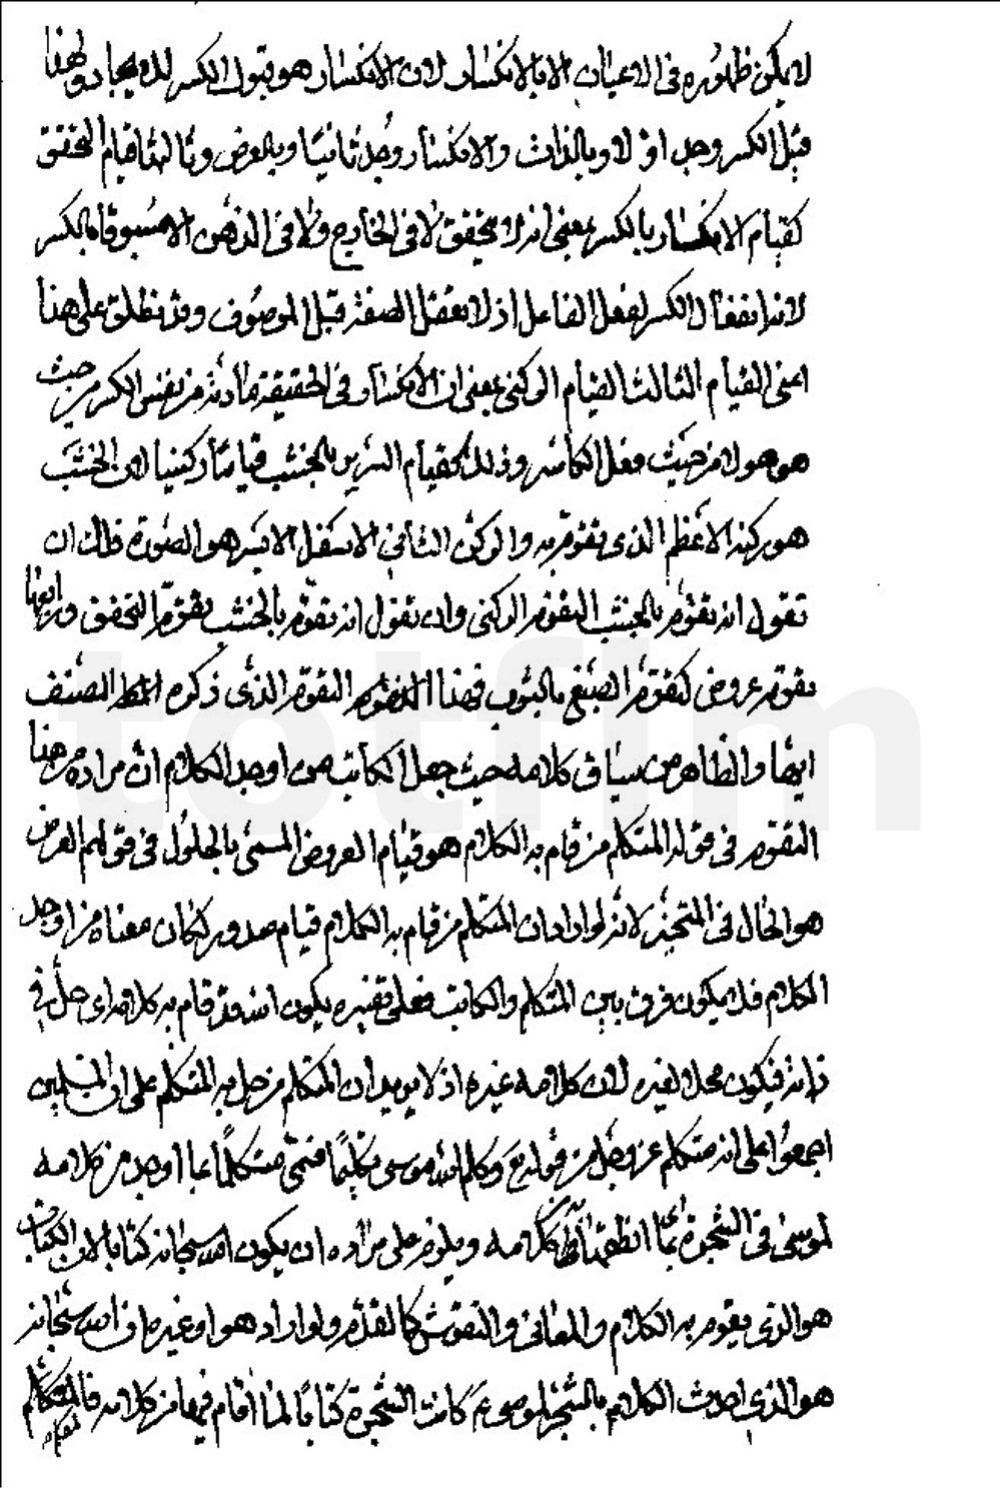 لا يمكن ظهوره في الاعيان الا بالانكسار لان الانكسار هو قبول الكسر للايجاد ولهذا
قيل الكسر وجد اولا وبالذات والانكسار وجد ثانيا وبالعرض وثالثها قيام التحقق
كقيام الانكسار بالكسر بمعنى انه لا يتحقق لا في الخارج ولا في الذهن الا مسبوقا بالكسر
لانه انفعال الكسر لفعل الفاعل اذ لا تعقل الصفة قبل الموصوف وقد نطلق على هذا
اعني القيام الثالث القيام الركني بمعنى ان الانكسار في الحقيقة مادته من نفس الكسر من حيث
هو هو لا من حيث فعل الكاسر وذلك كقيام السرير بالخشب قياما ركنيا لان الخشب
هو ركنه الاعظم الذي يتقوم به والركن الثاني الاسفل الايسر هو الصورة فلك ان
تقول انه تقوم بالخشب التقوم الركني وان تقول انه تقوم بالخشب تقوم التحقق ورابعها
تقوم عروض كتقوم الصبغ بالثوب فهذا التقوم الذي ذكره المصنف
ايضا والظاهر من سياق كلامه حيث جعل الكاتب من اوجد الكلام ان مراده من هذا
التقوم في قوله المتكلم من قام به الكلام هو قيام العروض المسمى بالحلول في قولهم العرض
هو الحال في المتحيز لانه لو اراد ان المتكلم من قام به الكلام قيام صدور لكان معناه من اوجد
الكلام فلا يكون فرق بين المتكلم والكاتب فعلى تفسيره يكون الله قد قام به كلامه اي حل في
ذاته فيكون محلا لغيره لان كلامه غيره اذ لا يريد ان المتكلم من حل به المتكلم على ان المسلمين
اجمعوا على انه متكلم عز وجل من قوله تع وكلم الله موسى تكليما فسمى متكلما بما اوجد من كلامه
لموسى في الشجرة كلامه ويلزم على مراده ان يكون الله سبحانه كتابا لان الكتاب
هو الذي يقوم به الكلام والمعاني والنقوش كما تقدم ولو اراد هو او غيره ان الله سبحانه
هو الذي احدث الكلام بالشجر لموسى ع كانت الشجرة كتابا لما اقام فيها من كلامه فالمتكلم